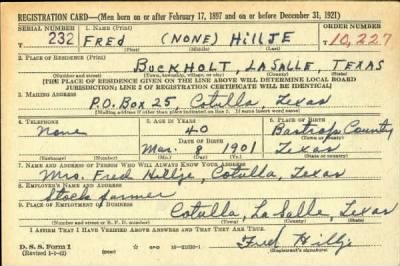 REGISTRATION CARD—(Men born on or after February 17, 1897 and on or before December 31, 1921)
SERIAL NUMBER 1. NAME (Print) ORDER NUMBER
T 232 FRED (NONE) HILLJE T 10,227
(First) (Middle) (Last)
2. PLACE OF RESIDENCE (Print)
BUCKHOLT, LASALLE, TEXAS
(Number and street) (Town, township, village, or city) (County) (State)
[THE PLACE OF RESIDENCE GIVEN ON THE LINE ABOVE WILL DETERMINE LOCAL BOARD
JURISDICTION; LINE 2 OF REGISTRATION CERTIFICATE WILL BE IDENTICAL]
3. MAILING ADDRESS
P.O. Box 25, Cotulla, Texas
[Mailing address if other than place indicated on line 2. If same insert word same]
4. TELEPHONE 5. AGE IN YEARS 6. PLACE OF BIRTH
None 40 Bastrop County
DATE OF BIRTH (Town or county)
Mar. 8 1901 Texas
(Exchange) (Number) (Mo.) (Day) (Yr.) (State or country)
7. NAME AND ADDRESS OF PERSON WHO WILL ALWAYS KNOW YOUR ADDRESS
Mrs. Fred Hillje, Cotulla, Texas
8. EMPLOYER'S NAME AND ADDRESS
Stock farmer
9. PLACE OF EMPLOYMENT OR BUSINESS
Cotulla, LaSalle, Texas
(Number and street or R. F. D. number) (Town) (County) (State)
I AFFIRM THAT I HAVE VERIFIED ABOVE ANSWERS AND THAT THEY ARE TRUE.
D. S. S. Form 1
(Revised 1-1-42) Fred Hillje
(Registrant's signature)